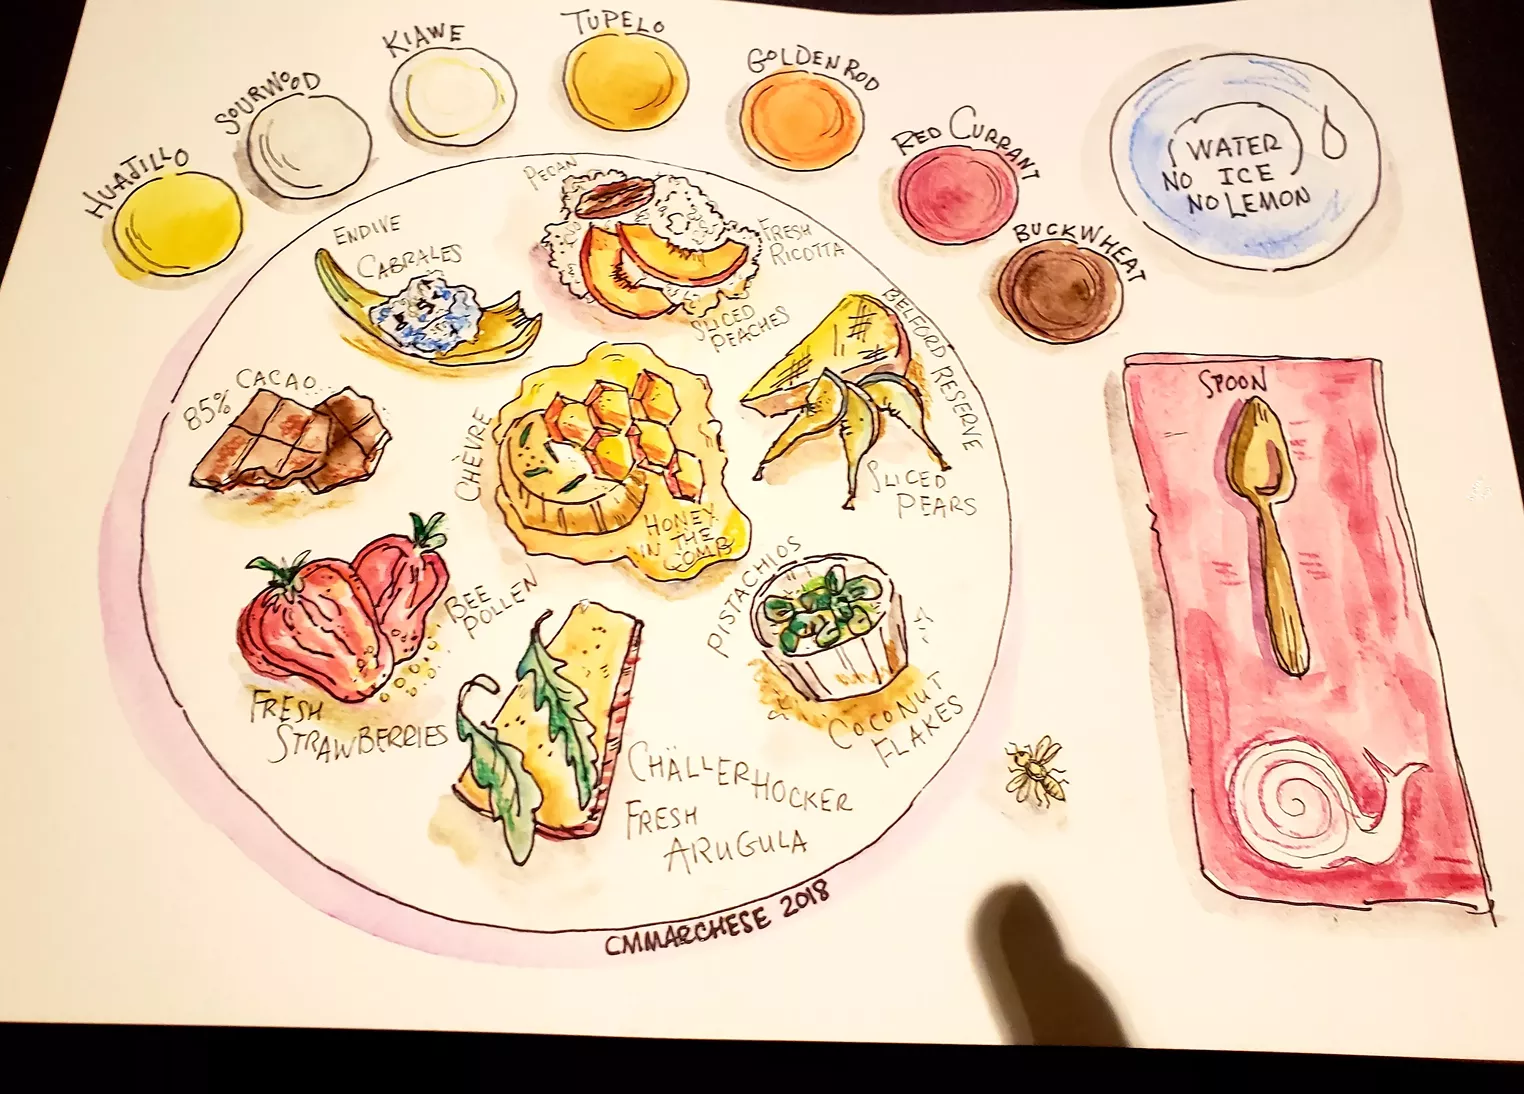 HUAJILLO
SOURWOOD
KIAWE
TUPELO
GOLDENROD
RED CURRANT
BUCKWHEAT
WATER
NO ICE
NO LEMON
PECAN
FRESH
RICOTTA
SLICED
PEACHES
ENDIVE
CABRALES
BELFORD RESERVE
SLICED
PEARS
85% CACAO
CHÈVRE
HONEY
IN THE
COMB
PISTACHIOS
COCONUT
FLAKES
BEE
POLLEN
FRESH
STRAWBERRIES
CHÄLLERHOCKER
FRESH
ARUGULA
CMMARCHESE 2018
SPOON